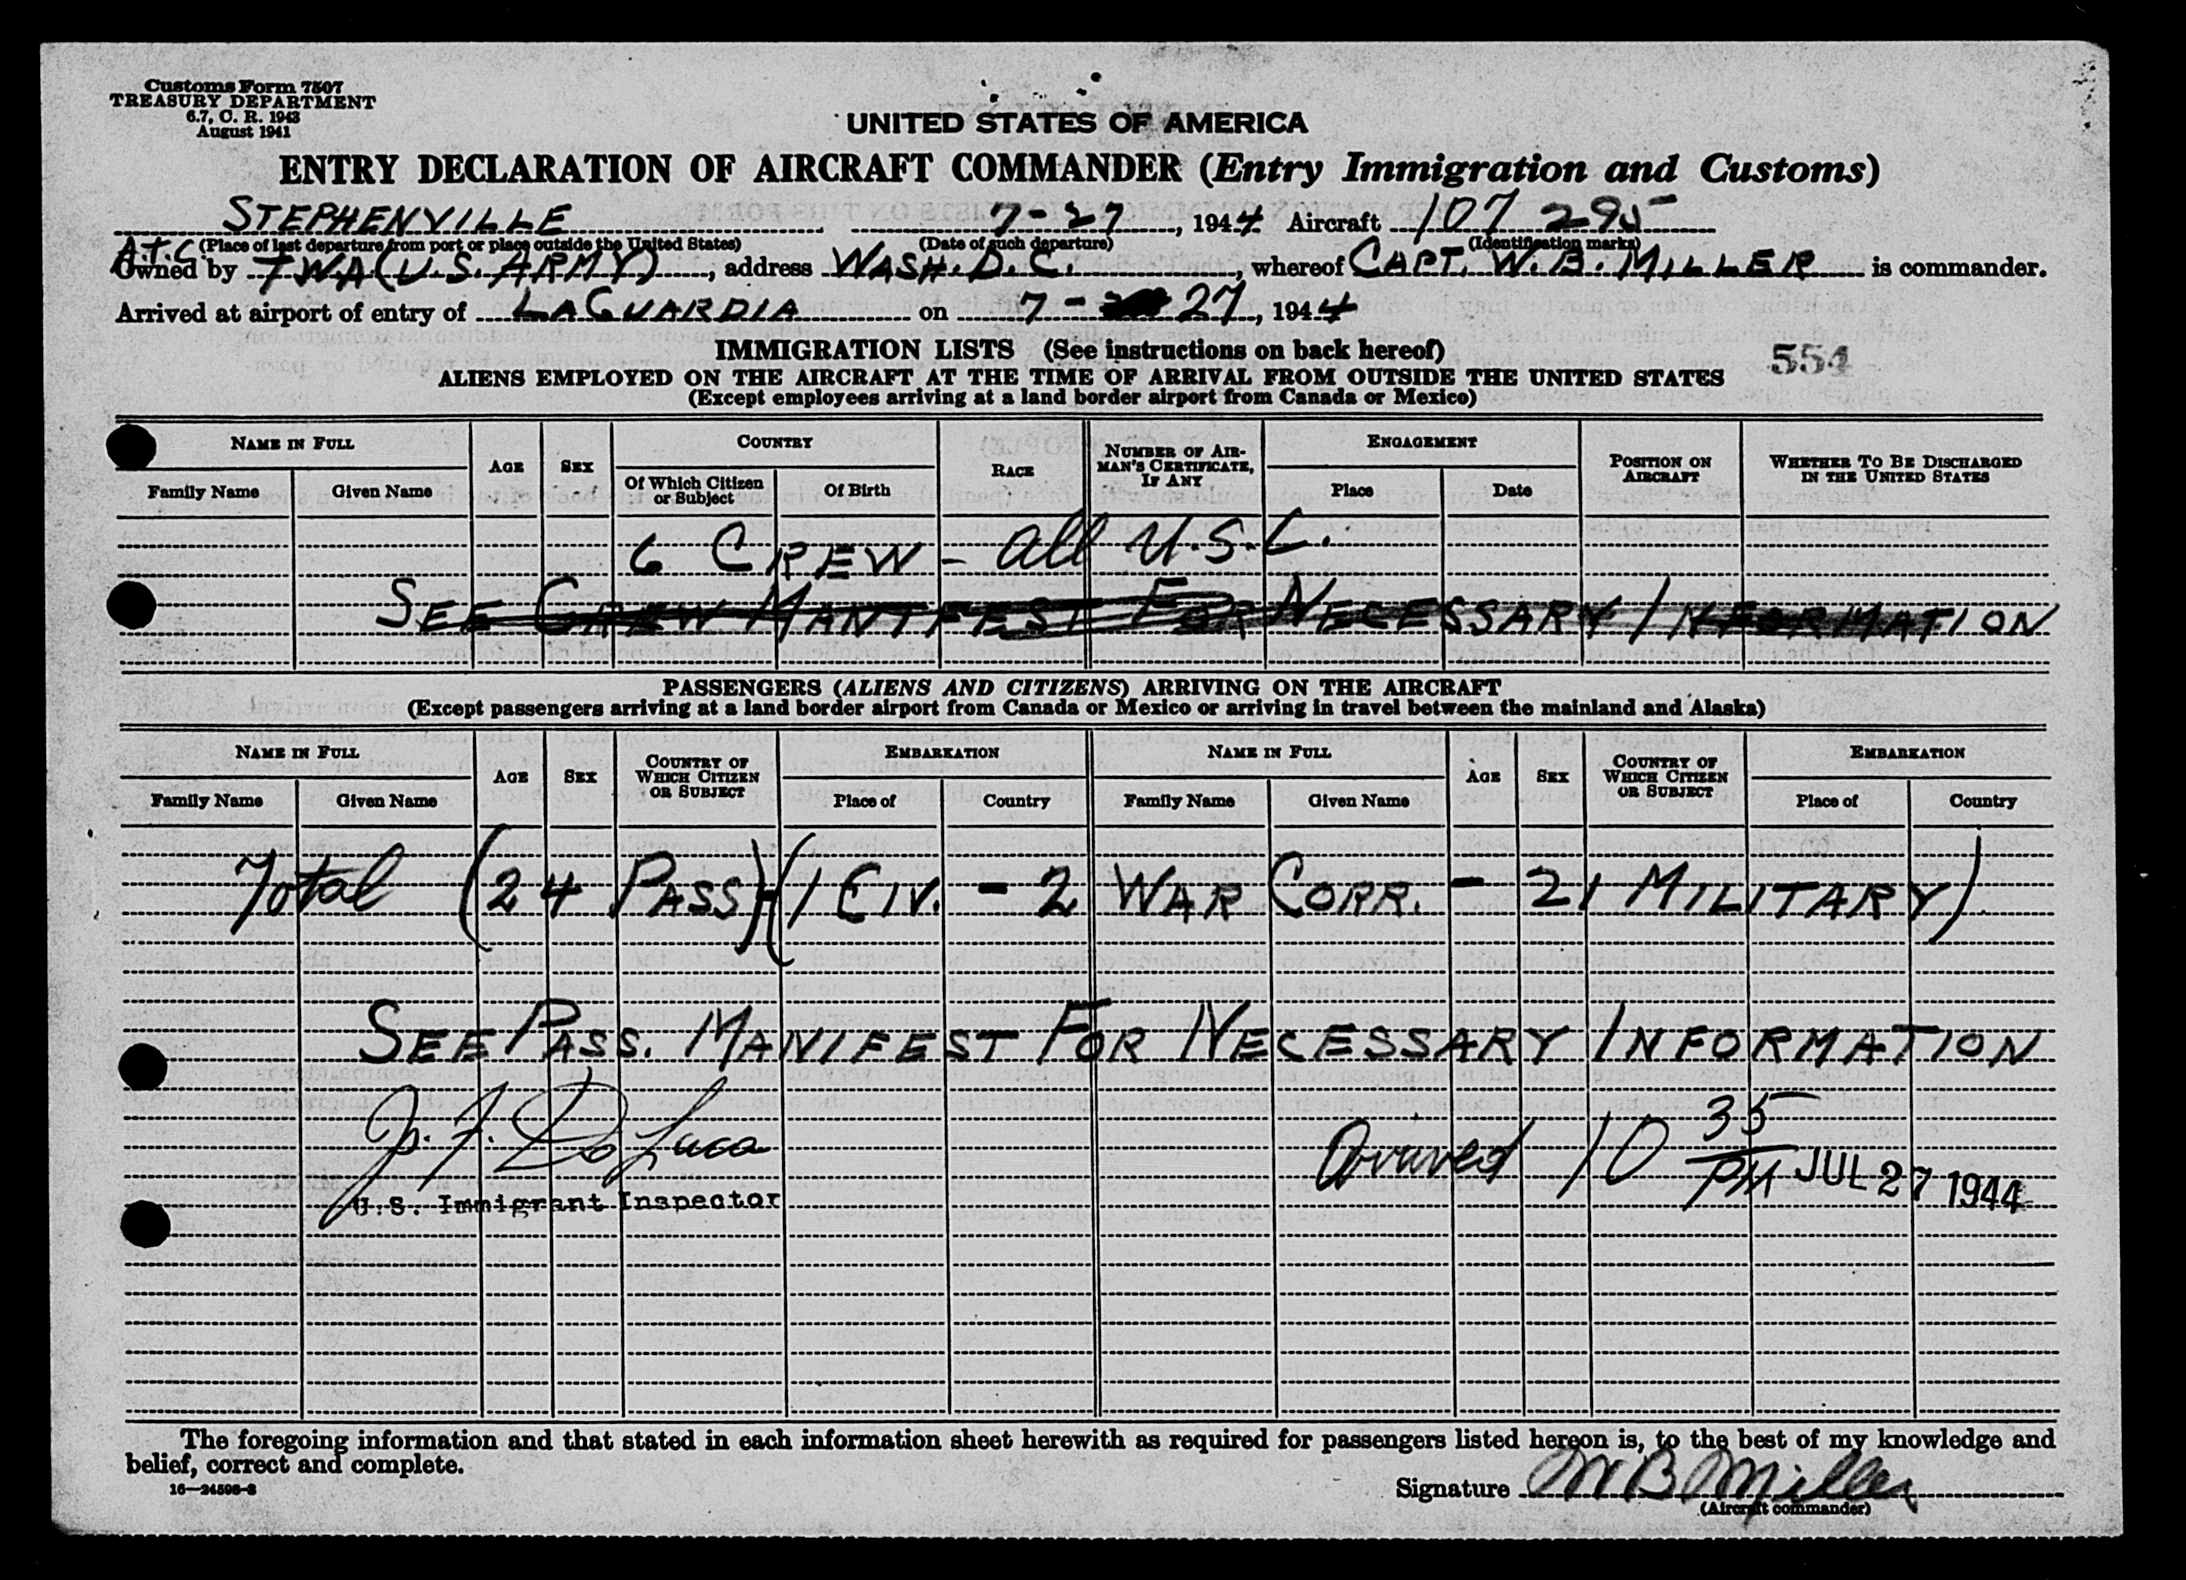 Customs Form 7507
TREASURY DEPARTMENT
6.7, C. R. 1943
August 1941
UNITED STATES OF AMERICA
ENTRY DECLARATION OF AIRCRAFT COMMANDER (Entry Immigration and Customs)
STEPHENVILLE 7-27, 1944 Aircraft 107 295
(Place of last departure from port or place outside the United States) (Date of such departure) (Identification marks)
A.T.C.
Owned by TWA (U.S. ARMY), address WASH. D.C., whereof CAPT. W. B. MILLER is commander.
Arrived at airport of entry of LAGUARDIA on 7-27, 1944
IMMIGRATION LISTS (See instructions on back hereof)
554
ALIENS EMPLOYED ON THE AIRCRAFT AT THE TIME OF ARRIVAL FROM OUTSIDE THE UNITED STATES
(Except employees arriving at a land border airport from Canada or Mexico)
NAME IN FULL AGE SEX COUNTRY RACE NUMBER OF AIRMAN'S CERTIFICATE, IF ANY ENGAGEMENT POSITION ON AIRCRAFT WHETHER TO BE DISCHARGED IN THE UNITED STATES
Family Name Given Name Of Which Citizen or Subject Of Birth Place Date
6 CREW - all U.S.C.
SEE CREW MANIFEST FOR NECESSARY INFORMATION
PASSENGERS (ALIENS AND CITIZENS) ARRIVING ON THE AIRCRAFT
(Except passengers arriving at a land border airport from Canada or Mexico or arriving in travel between the mainland and Alaska)
NAME IN FULL AGE SEX COUNTRY OF WHICH CITIZEN OR SUBJECT EMBARKATION NAME IN FULL AGE SEX COUNTRY OF WHICH CITIZEN OR SUBJECT EMBARKATION
Family Name Given Name Place of Country Family Name Given Name Place of Country
Total (24 PASS)-(1 CIV. - 2 WAR CORR. - 21 MILITARY)
SEE PASS. MANIFEST FOR NECESSARY INFORMATION
J. F. DeLuca
U.S. Immigrant Inspector
Arrived 10 35 PM JUL 27 1944
The foregoing information and that stated in each information sheet herewith as required for passengers listed hereon is, to the best of my knowledge and
belief, correct and complete.
16—24598-2
Signature W B Miller
(Aircraft commander)